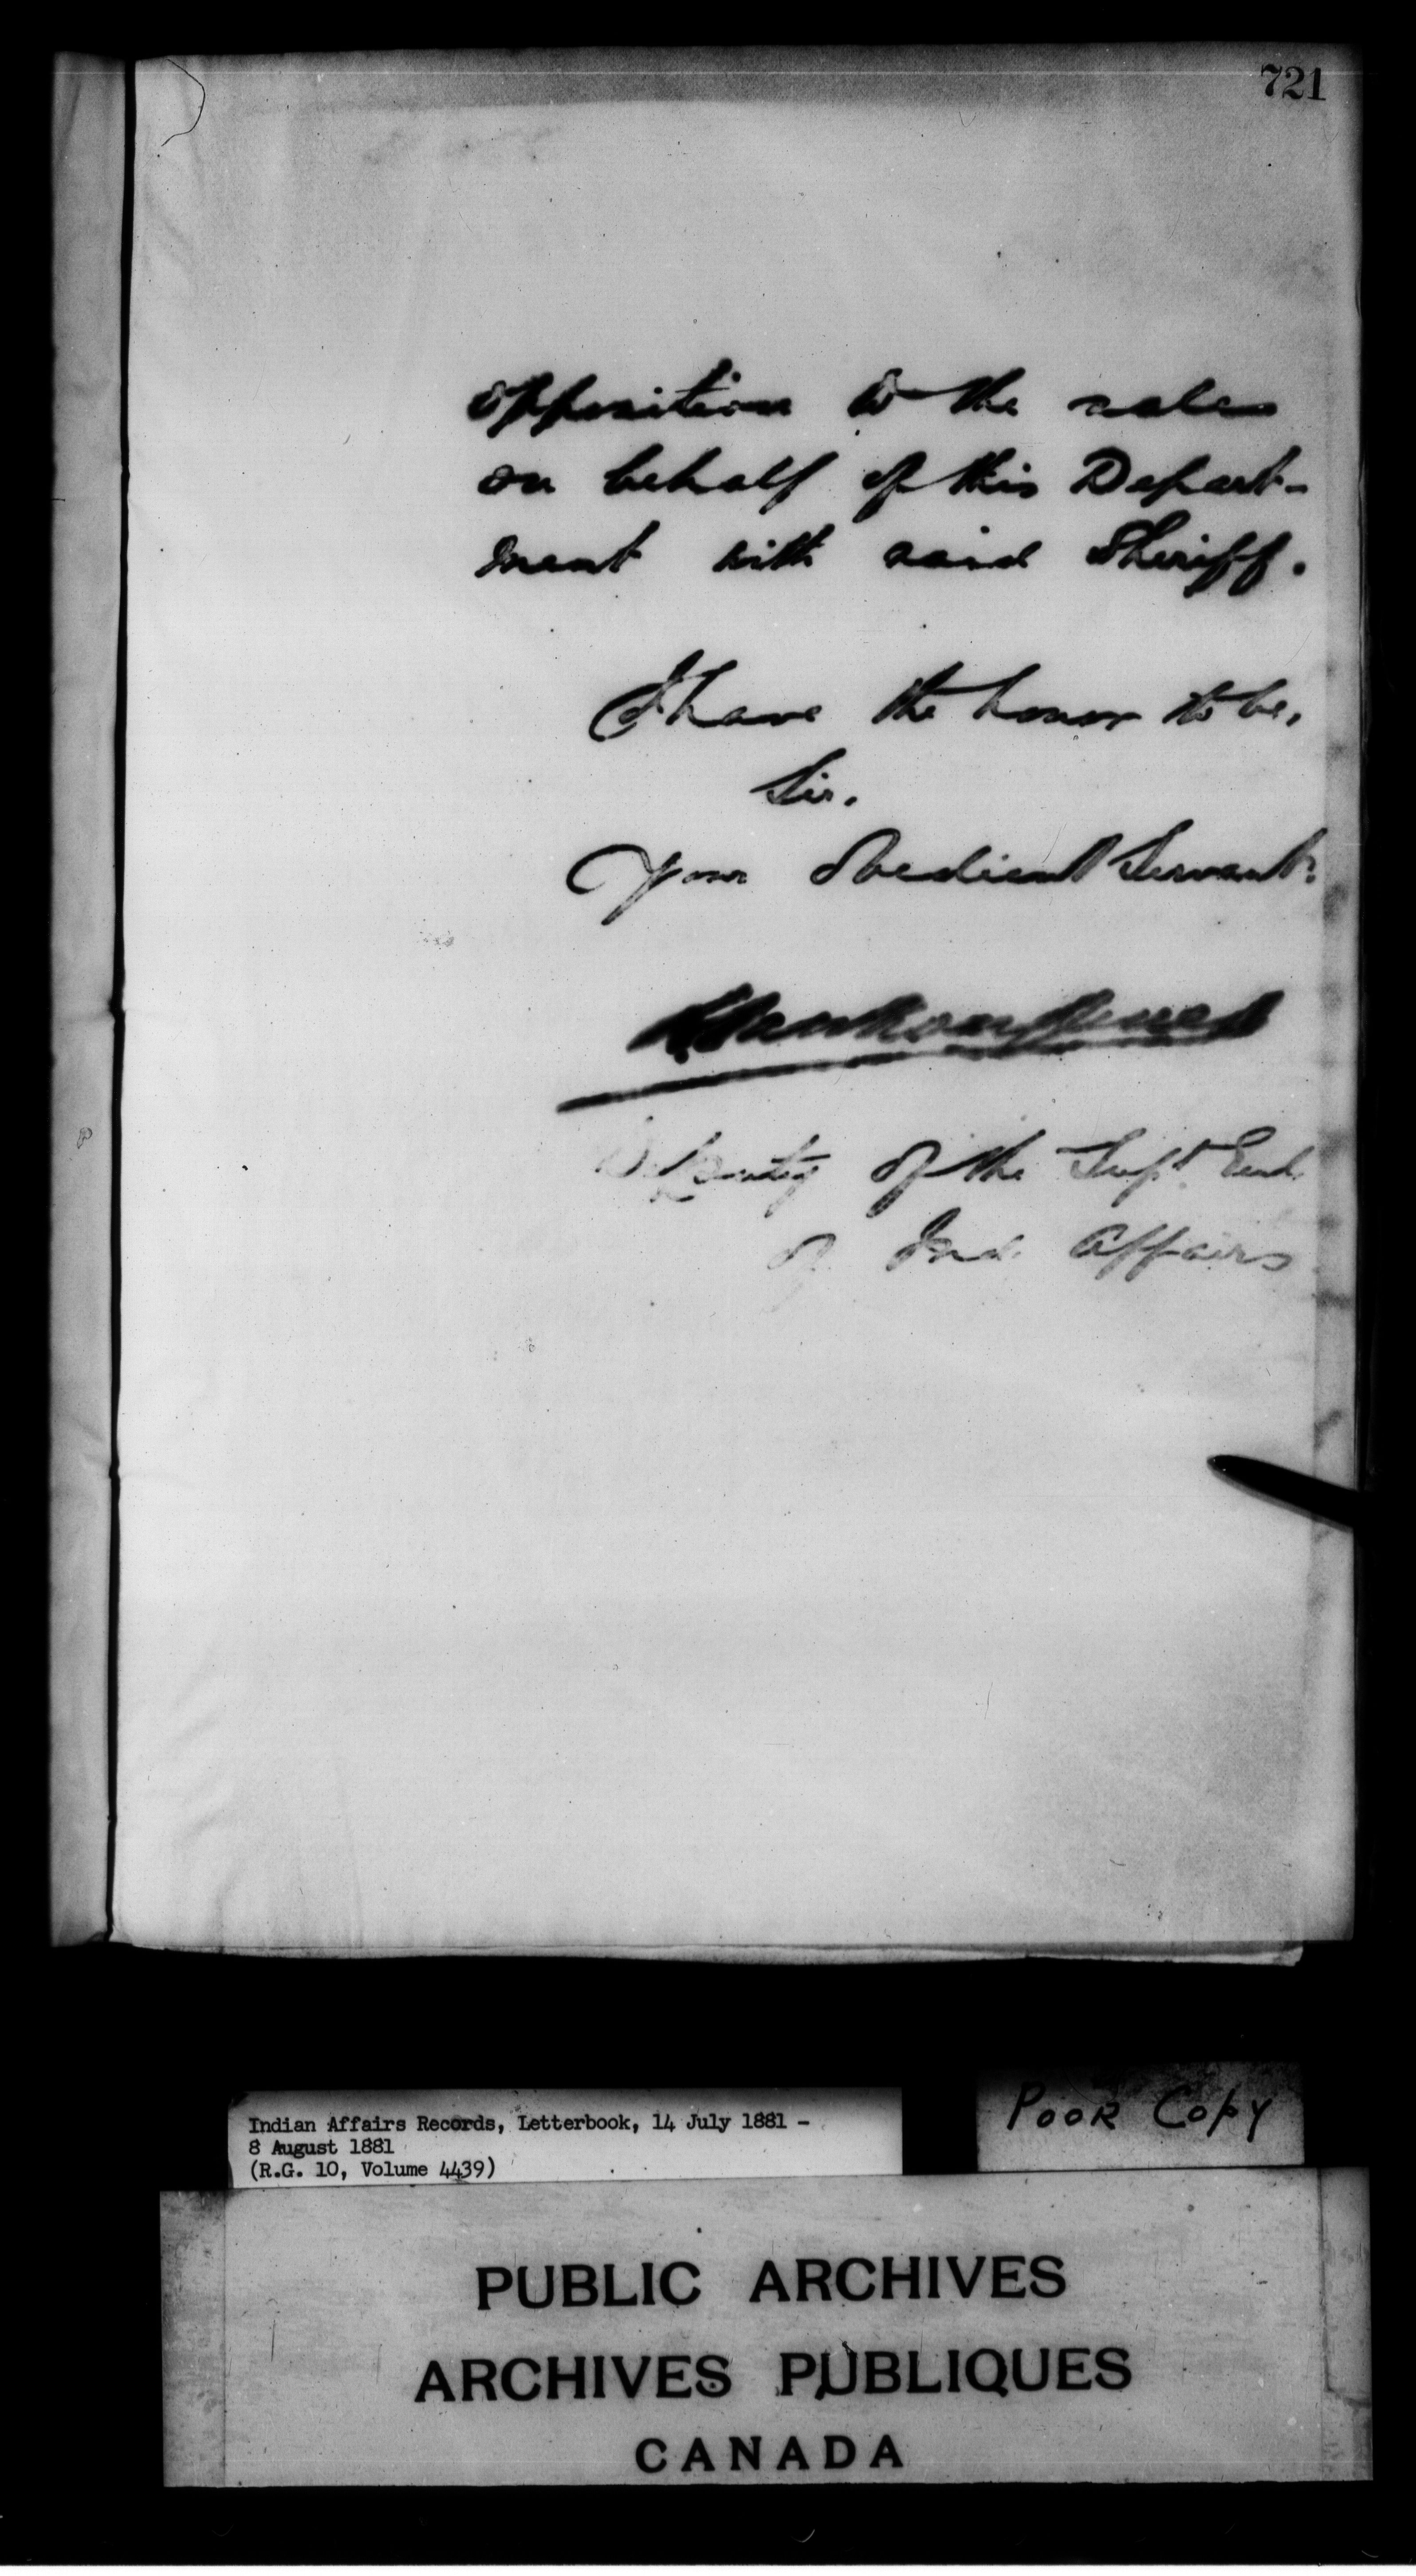 721
opposition to the sales
on behalf of this Depart-
ment with said Sheriff.
I have the honor to be,
Sir.
Your Obedient Servant.
Deputy of the Supt. Genl.
of Ind. Affairs
Indian Affairs Records, Letterbook, 14 July 1881 -
8 August 1881
(R.G. 10, Volume 4439)
Poor Copy
PUBLIC ARCHIVES
ARCHIVES PUBLIQUES
CANADA